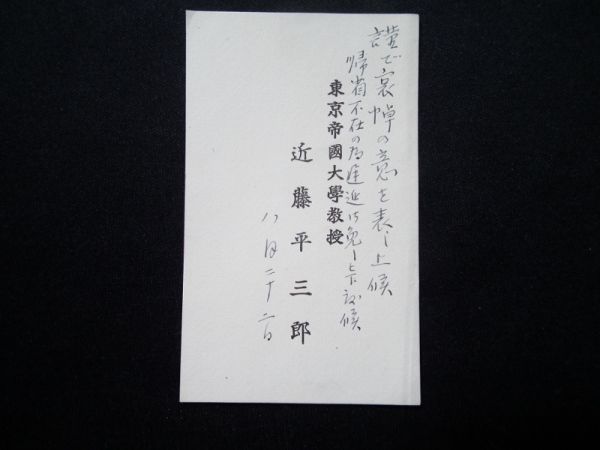 謹で哀悼の意を表し上候
帰省不在の為遅延御免し下され度候
東京帝國大學教授
近藤平三郎
八月二十二日